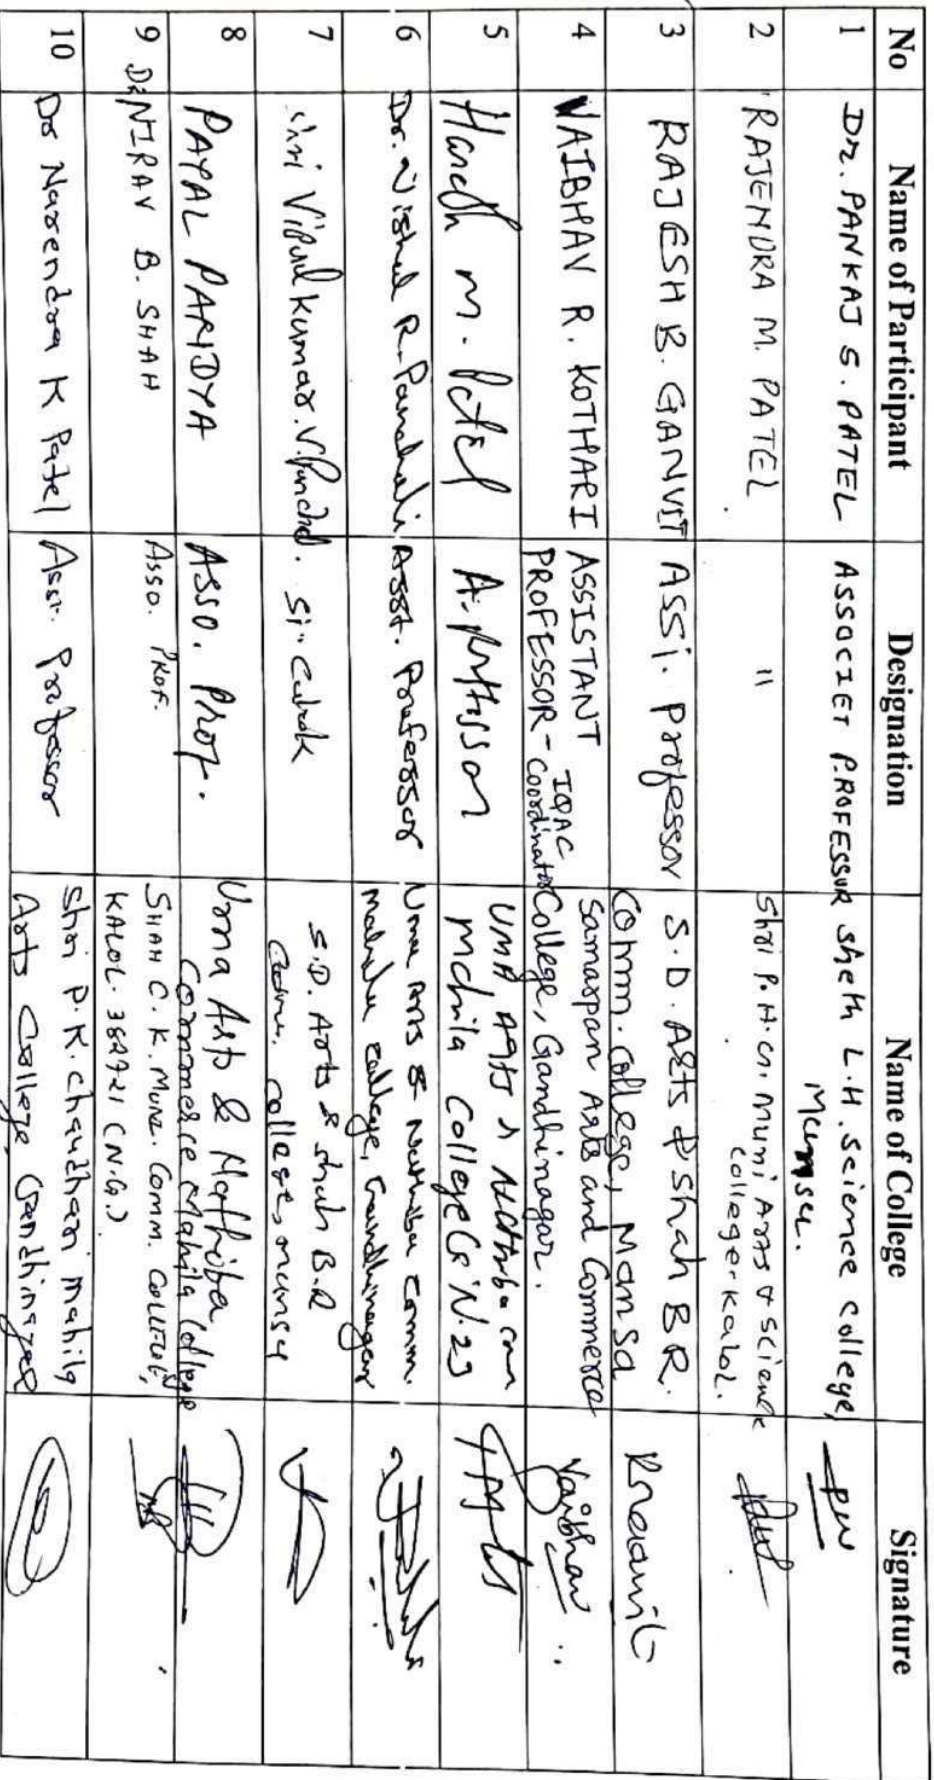 No Name of Participant Designation Name of College Signature
1 Dr. PANKAJ S. PATEL ASSOCIET PROFESSUR Sheth L.H. Science College,
Mansa.
2 RAJENDRA M. PATEL " Shri P.H.G. Muni Arts & Science
College. Kalol.
3 RAJESH B. GANVIT ASSi. Professor S.D. Arts & Shah B R.
Comm. College, Mansa
4 VAIBHAV R. KOTHARI ASSISTANT
PROFESSOR - IQAC
Coordinator Samarpan Arts and Commerce
College, Gandhinagar. Vaibhav
5 M. Patel UMA Arts
Mahila College
6 Dr. R. Asst. Professor Uma Arts & Nathiba Comm.
Mahila College, Gandhinagar
7 Shri Vipulkumar V. S.D. Arts & Shah B.R
Comm. College, mansa
8 PAYAL PANDYA Asso. Prof. Uma Arts & Nathiba
Commerce Mahila College
9 Dr NIRAV B. SHAH Asso. Prof. SHAH C. K. MUNI. Comm. COLLEGE,
KALOL. 382721 (N.G.)
10 Dr Narendra K Patel Asst. Professor Shri P.K. Chaudhari mahila
Arts College, Gandhinagar